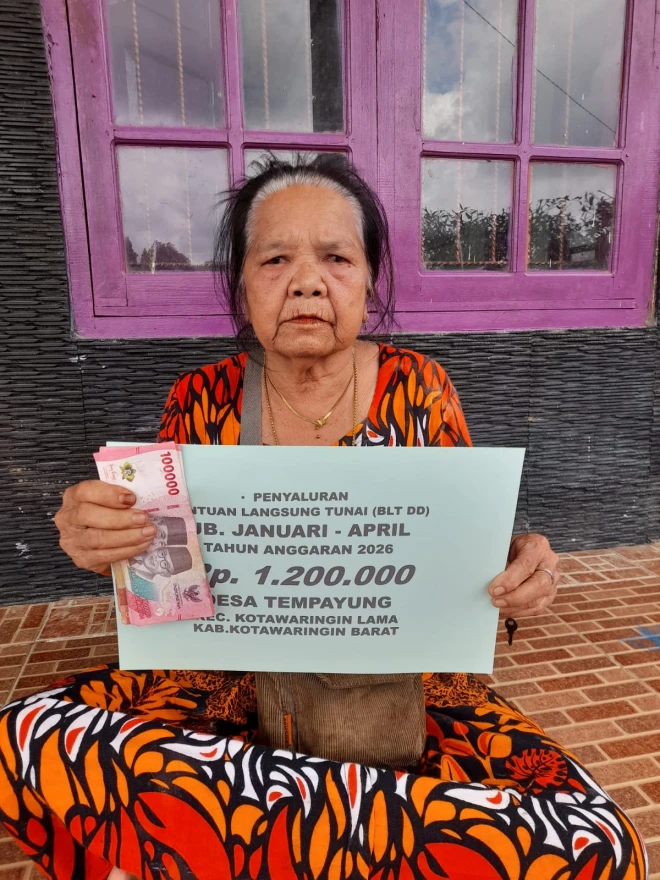 PENYALURAN
NTUAN LANGSUNG TUNAI (BLT DD)
UB. JANUARI - APRIL
TAHUN ANGGARAN 2026
Rp. 1.200.000
DESA TEMPAYUNG
KEC. KOTAWARINGIN LAMA
KAB.KOTAWARINGIN BARAT
100000